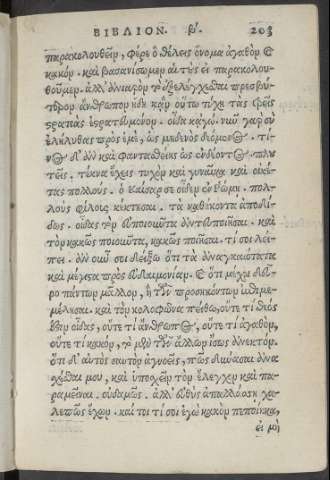 ΒΙΒΛΙΟΝ. β'. 203
παρακολουθεῖν, φέρε ὃ θέλεις ὄνομα ἀγαθὸν ἢ
κακόν. καὶ βασανίσωμεν αὐτοὺς εἰ παρακολου-
θοῦμεν. ἀλλ' ἀνιαρὸν τὸ ἐξελέγχεσθαι πρεσβύ-
τερον ἄνθρωπον ἤδη κἂν οὕτω τύχῃ τὰς τρεῖς
στρατιὰς ἐστρατευμένον. οἶδα κἀγώ. νῦν γὰρ σὺ
ἐλήλυθας πρὸς ἐμὲ, ὡς μηδενὸς δεόμενος. τί-
νος δ' ἂν καὶ φαντασθείης ὡς ἐνδέοντος. πλου-
τεῖς. τέκνα ἔχεις τυχὸν καὶ γυναῖκα καὶ οἰκέ-
τας πολλούς. ὁ καῖσαρ σε οἶδεν ἐν ῥώμῃ. πολ-
λοὺς φίλους κέκτησαι. τὰ καθήκοντα ἀποδί-
δως. οἶδας τὸν εὐποιοῦντα ἀντευποιῆσαι. καὶ
τὸν κακῶς ποιοῦντα, κακῶς ποιῆσαι. τί σοι λεί-
πει. ἂν οὖν σοι δείξω ὅτι τὰ ἀναγκαιότατα
καὶ μέγιστα πρὸς εὐδαιμονίαν. καὶ ὅτι μέχρι δεῦ-
ρο πάντων μᾶλλον, ἢ τῶν προσηκόντων ἐπιμε-
μέλησαι. καὶ τὸν κολοφῶνα ἐπιθῶ, οὔτε τί θεός
ἐστιν οἶδας, οὔτε τί ἄνθρωπος, οὔτε τί ἀγαθὸν,
οὔτε τί κακὸν, τὸ μὲν τῶν ἄλλων ἴσως ἀνεκτόν.
ὅτι δ' αὐτὸς σαυτὸν ἀγνοεῖς, πῶς δύνασαι ἀνα-
σχέσθαι μου, καὶ ὑποσχεῖν τὸν ἔλεγχον καὶ πα-
ραμεῖναι. οὐδαμῶς. ἀλλ' εὐθὺς ἀπαλλάσσῃ χα-
λεπῶς ἔχων. καί τοι τί σοι ἐγὼ κακὸν πεποίηκα,
εἰ μὴ